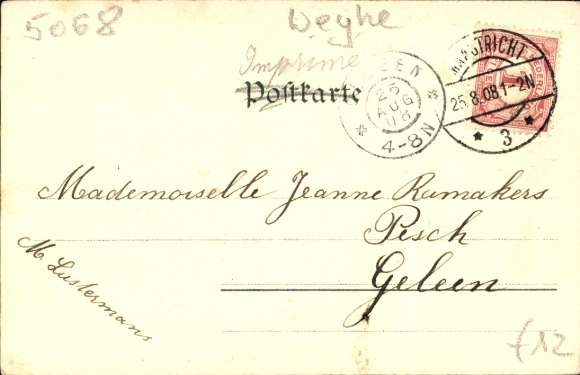 5068
Weghe
Imprimé
Postkarte
25
AUG
08
4-8N
MAASTRICHT
25.8.08 1-2N
3
Mademoiselle Jeanne Ramakers
Pesch
Geleen
M. Lustermans
f12